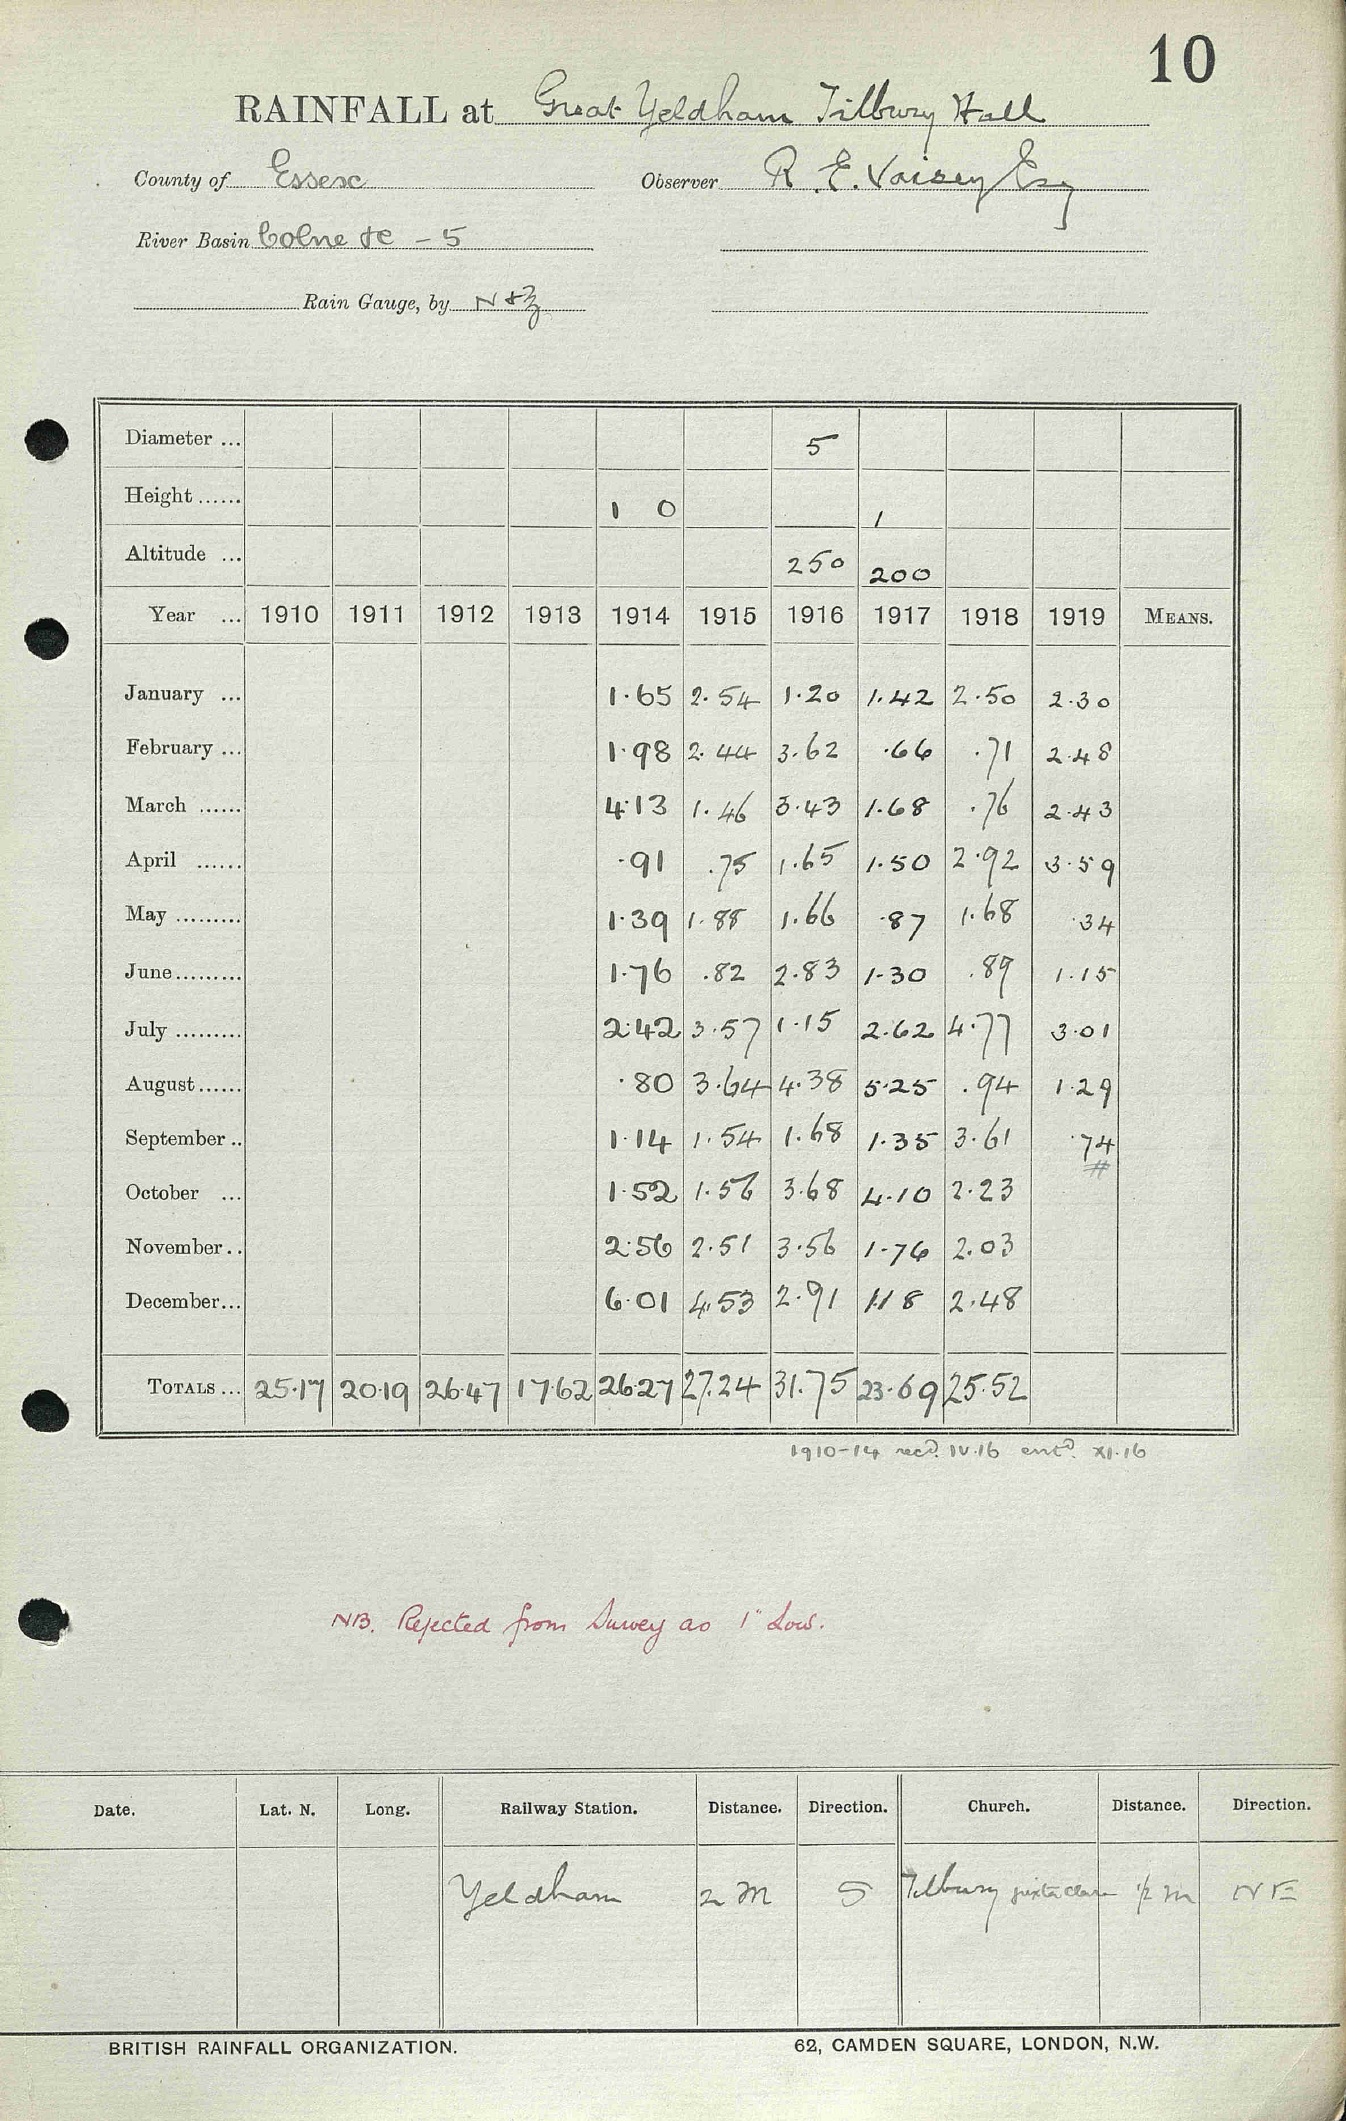 10
RAINFALL at Great Yeldham Tilbury Hall
County of Essex Observer R. E. Vaisey Esq
River Basin Colne &c - 5
Rain Gauge, by N & Z
Diameter ... 5
Height ...... 1 0 1
Altitude ... 250 200
Year ... 1910 1911 1912 1913 1914 1915 1916 1917 1918 1919 MEANS.
January ... 1.65 2.54 1.20 1.42 2.50 2.30
February ... 1.98 2.44 3.62 .66 .71 2.48
March ...... 4.13 1.46 3.43 1.68 .76 2.43
April ...... .91 .75 1.65 1.50 2.92 3.59
May ......... 1.39 1.88 1.66 .87 1.68 .34
June ......... 1.76 .82 2.83 1.30 .89 1.15
July ......... 2.42 3.57 1.15 2.62 4.77 3.01
August ...... .80 3.64 4.38 5.25 .94 1.29
September .. 1.14 1.54 1.68 1.35 3.61 .74
October ... 1.52 1.56 3.68 4.10 2.23
November .. 2.56 2.51 3.56 1.76 2.03
December ... 6.01 4.53 2.91 1.18 2.48
TOTALS ... 25.17 20.19 26.47 17.62 26.27 27.24 31.75 23.69 25.52
1910-14 recd. IV.16 entd. XI.16
NB. Rejected from Survey as 1" Low.
Date. Lat. N. Long. Railway Station. Distance. Direction. Church. Distance. Direction.
Yeldham 2 M S Tilbury juxta Clare 1/2 m NE
BRITISH RAINFALL ORGANIZATION. 62, CAMDEN SQUARE, LONDON, N.W.